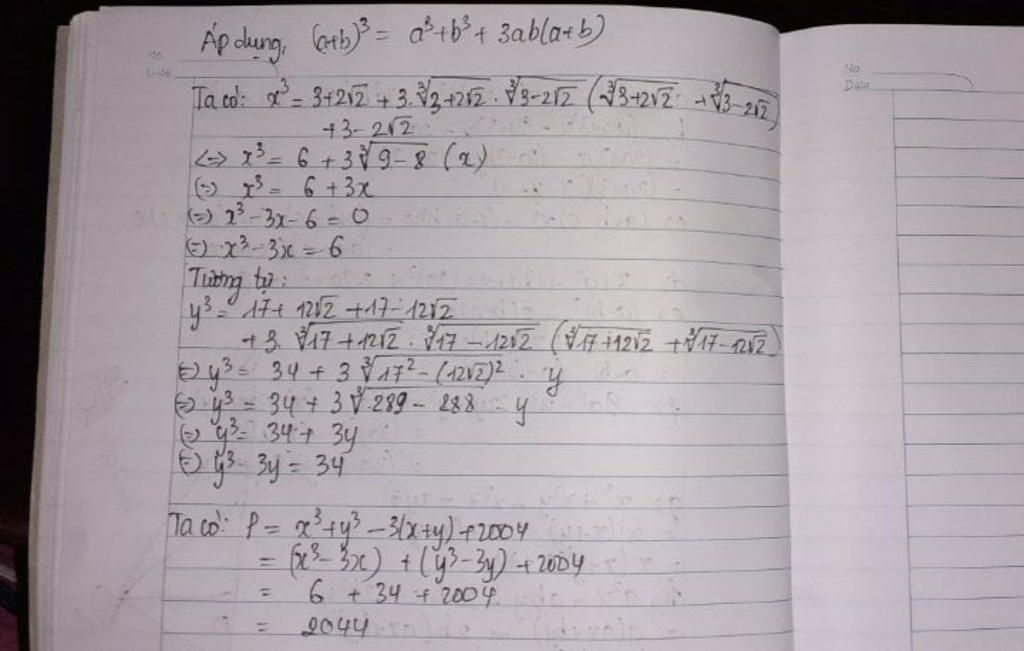 Áp dụng, (a+b)³ = a³+b³ + 3ab(a+b)
No
Date
No
Date
Ta có: x³ = 3+2√2 + 3.∛3+2√2 . ∛3-2√2 (∛3+2√2 + ∛3-2√2)
+3-2√2
<=> x³ = 6 + 3∛9-8 (x)
(=) x³ = 6 + 3x
(=) x³ - 3x - 6 = 0
(=) x³ - 3x = 6
Tương tự:
y³ = 17 + 12√2 + 17 - 12√2
+ 3. ∛17 + 12√2 . ∛17 - 12√2 (∛17+12√2 + ∛17-12√2)
(=) y³ = 34 + 3 ∛17² - (12√2)² . y
(=) y³ = 34 + 3∛289 - 288 . y
(=) y³ = 34 + 3y
(=) y³ - 3y = 34
Ta có: P = x³+y³ - 3(x+y) + 2004
= (x³ - 3x) + (y³ - 3y) + 2004
= 6 + 34 + 2004
= 2044